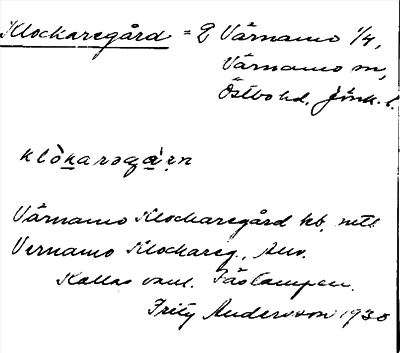 Klockaregård = 2 Värnamo 1/4,
Värnamo sn,
Östbo hd, Jönk. l.
klòkarəgạ̊ṛn
Värnamo Klockaregård kb, mtl
Vernamo Klockareg.,
Kallas vanl.
Fritz Andersson 1930